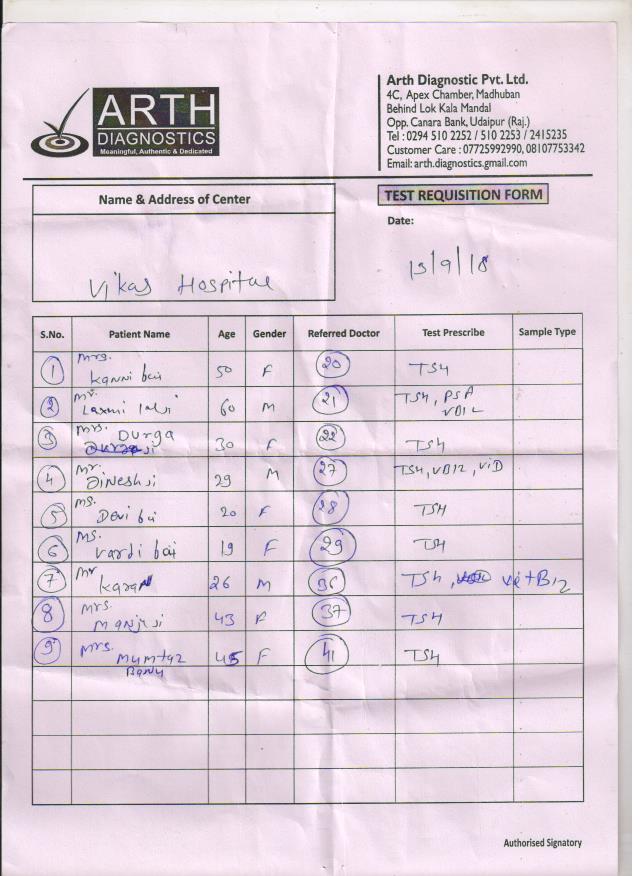 ARTH
DIAGNOSTICS
Meaningful, Authentic & Dedicated
Arth Diagnostic Pvt. Ltd.
4C, Apex Chamber, Madhuban
Behind Lok Kala Mandal
Opp. Canara Bank, Udaipur (Raj.)
Tel : 0294 510 2252 / 510 2253 / 2415235
Customer Care : 07725992990, 08107753342
Email: arth.diagnostics.gmail.com
Name & Address of Center
TEST REQUISITION FORM
Date:
13/9/18
Vikas Hospital
S.No. Patient Name Age Gender Referred Doctor Test Prescribe Sample Type
1 Mrs. Kanni bai 50 F 20 TSH
2 Mr. Laxmi lalji 60 M 21 TSH, PSA VB12
3 Mrs. DURGA 30 F 22 TSH
4 Mr Dineshji 29 M 27 TSH, VB12, ViD
5 Ms. Devi bai 20 F 28 TSH
6 Ms. Vardi bai 19 F 29 TSH
7 Mr Karan 26 M 36 TSH, Vit B12
8 Mrs. Manjuji 43 F 37 TSH
9 Mrs. Mumtaz Banu 45 F 41 TSH
Authorised Signatory